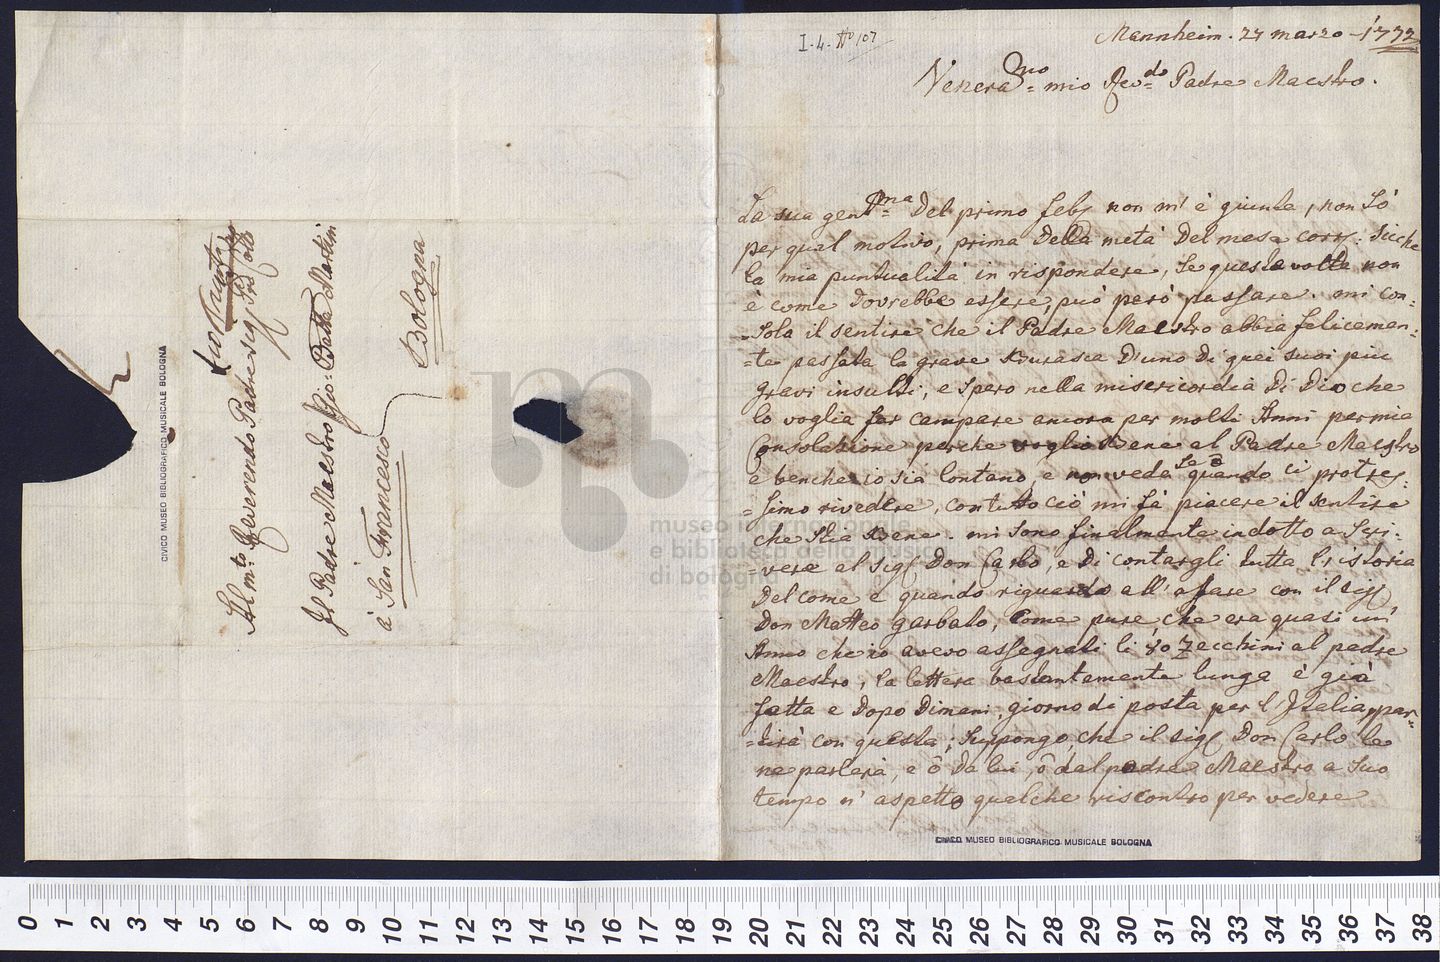 I-4-No 107
Mannheim. 27 marzo - 1772
Venera.mo mio Rev.do Padre Maestro.
La sua gen.ma Del primo feb. non m'è giunta, non Sò
per qual motivo, prima Della metà Del mese corr.: sicche
la mia puntualità in rispondere, Se questa volta non
è come Dovrebbe essere, può però passare. mi con:
=Sola il sentire che il Padre Maestro abbia felicemen:
=te passata la grave Burasca D'uno Di quei suoi più
gravi insulti, e Spero nella misericordia Di Dio che
lo voglia far campare ancora per molti Anni per mia
Consolazione perche voglio Bene al Padre Maestro
e benche io sia lontano, e non veda se quando ci potres:
=simo rivedere, con tutto ciò mi fà piacere il sentire
che Stia Bene. mi Sono finalmente indotto a Scri:
=vere al Sig. Don Carlo, e Di contargli tutta l'istoria
Del come e quando riguardo all'affare con il Sig.
Don Matteo Garbalo, Come pure che era quasi un'
Anno che io avevo assegnati li 80 Zecchini al padre
Maestro, la lettera bastantemente lunga è già
fatta e Dopo Dimani, giorno di posta per l'Italia, par:
=tirà con questa; Suppongo, che il Sig. Don Carlo le
ne parlerà, e ò Da lui, ò dal padre Maestro a Suo
tempo n'aspetto qualche riscontro per vedere
CIVICO MUSEO BIBLIOGRAFICO MUSICALE BOLOGNA
Al m.to Reverendo Padre Sig.
Il Padre Maestro Gio: Batta Martini
à San Francesco
Bologna
CIVICO MUSEO BIBLIOGRAFICO MUSICALE BOLOGNA
museo internazionale
e biblioteca della musica
di bologna
0 1 2 3 4 5 6 7 8 9 10 11 12 13 14 15 16 17 18 19 20 21 22 23 24 25 26 27 28 29 30 31 32 33 34 35 36 37 38